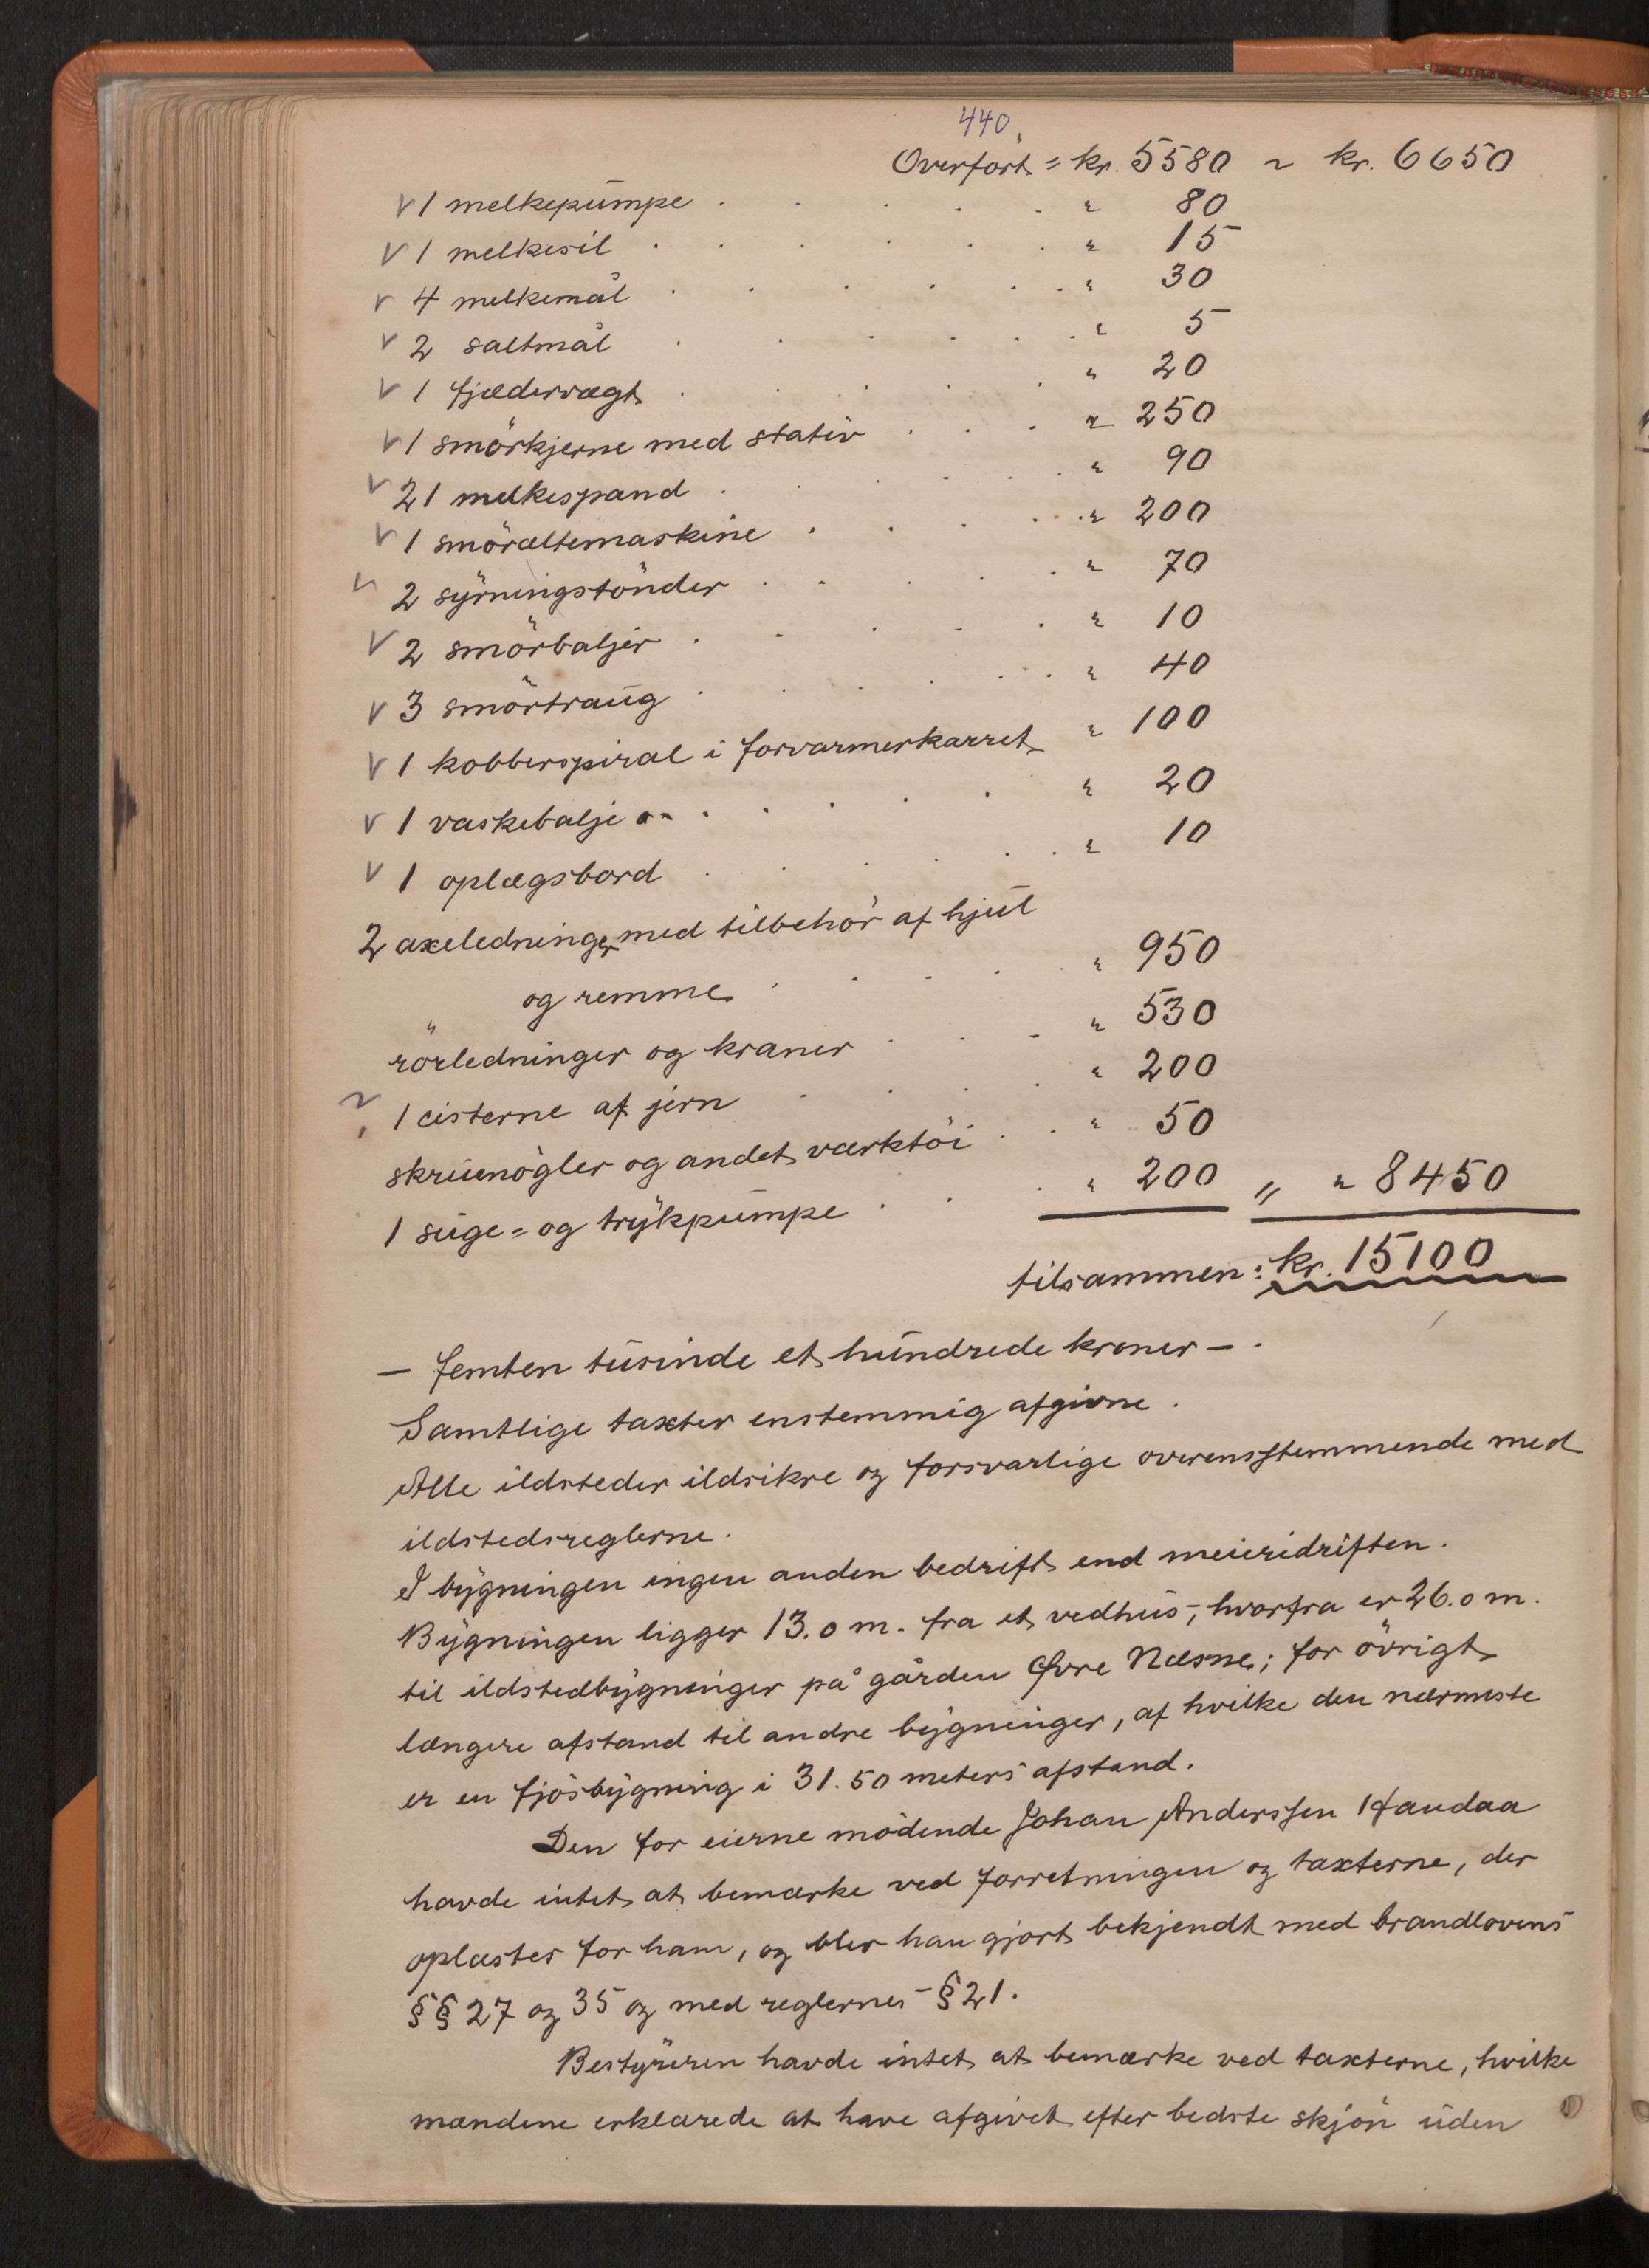 440
Overført = kr. 5580 ~ kr. 6650
√ 1 melkepumpe . . . . . " 80
√ 1 melkesil . . . . . . " 15
√ 4 melkemål . . . . . . " 30
√ 2 saltmål . . . . . . " 5
√ 1 fjædervægt . . . . . " 20
√ 1 smörkjerne med stativ . . . " 250
√ 21 melkespand . . . . . " 90
√ 1 smöræltemaskine . . . . . " 200
√ 2 syrningstönder . . . . . " 70
√ 2 smörbaljer . . . . . " 10
√ 3 smörtraug . . . . . " 40
√ 1 kobberspiral i forvarmerkarret " 100
√ 1 vaskebalje . . . . . " 20
√ 1 oplægsbord . . . . . " 10
2 axeledninger med tilbehör af hjul
og remme . . . . . " 950
rörledninger og kraner . . . " 530
1 cisterne af jern . . . . " 200
skruenögler og andet værktöi . . " 50
1 suge- og trykpumpe . . " 200 " " 8450
tilsammen: kr. 15100
— femten tusinde et hundrede kroner — .
Samtlige taxter enstemmig afgivne .
Alle ildsteder ildsikre og forsvarlige overensstemmende med
ildstedsreglerne .
I bygningen ingen anden bedrift end meieridriften .
Bygningen ligger 13.0 m. fra et vedhus, hvorfra er 26.0 m.
til ildstedbygninger på gården Øvre Næsne; for övrigt
længere afstand til andre bygninger, af hvilke den nærmeste
er en fjösbygning i 31.50 meters afstand.
Den for eierne mödende Johan Anderssen Haudaa
havde intet at bemærke ved forretningen og taxterne, der
oplæstes for ham, og blev han gjort bekjendt med brandlovens
§§ 27 og 35 og med reglernes § 21.
Bestyreren havde intet at bemærke ved taxterne, hvilke
mændene erklærede at have afgivet efter bedste skjön uden